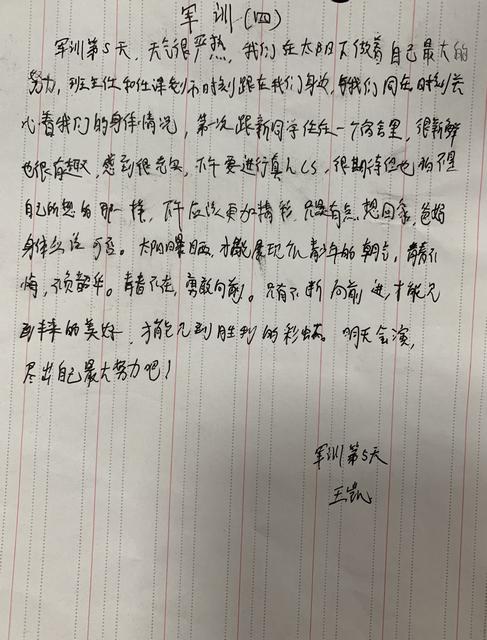 军训(四)
军训第5天，天气很严热，我们在太阳下做着自己最大的
努力，班主任和任课老师不时刻跟在我们身边，与我们同在时刻关
心着我们的身体情况，第一次跟新同学住在一个宿舍里，很新鲜
也很有趣，感到很充实，下午要进行真人CS，很期待但也怕不是
自己所想的那一样，下午应该更加精彩，只是有点想回家，爸妈
身体应该可否。太阳暴晒，才能展现我们青少年的朝气，青春不
悔，不负韶华。青春不在，勇敢向前。只有不断向前进，才能见
到未来的美好，才能见到胜利的彩虹。明天会演，
尽出自己最大努力吧！
军训第5天
王凯